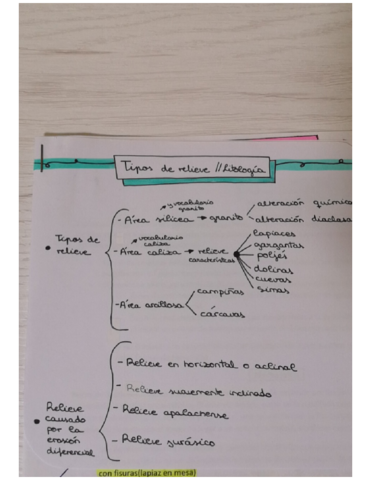 Tipos de relieve // Litología
• Tipos de relieve
vocabulario granito
- Área silícea → granito
alteración química
alteración diaclasa
vocabulario caliza
- Área caliza → relieve característicos
lapiaces
gargantas
poljés
dolinas
cuevas
simas
- Área arcillosa
campiñas
cárcavas
• Relieve causado por la erosión diferencial
- Relieve en horizontal o aclinal
- Relieve suavemente inclinado
- Relieve apalachense
- Relieve jurásico
con fisuras(lapiaz en mesa)